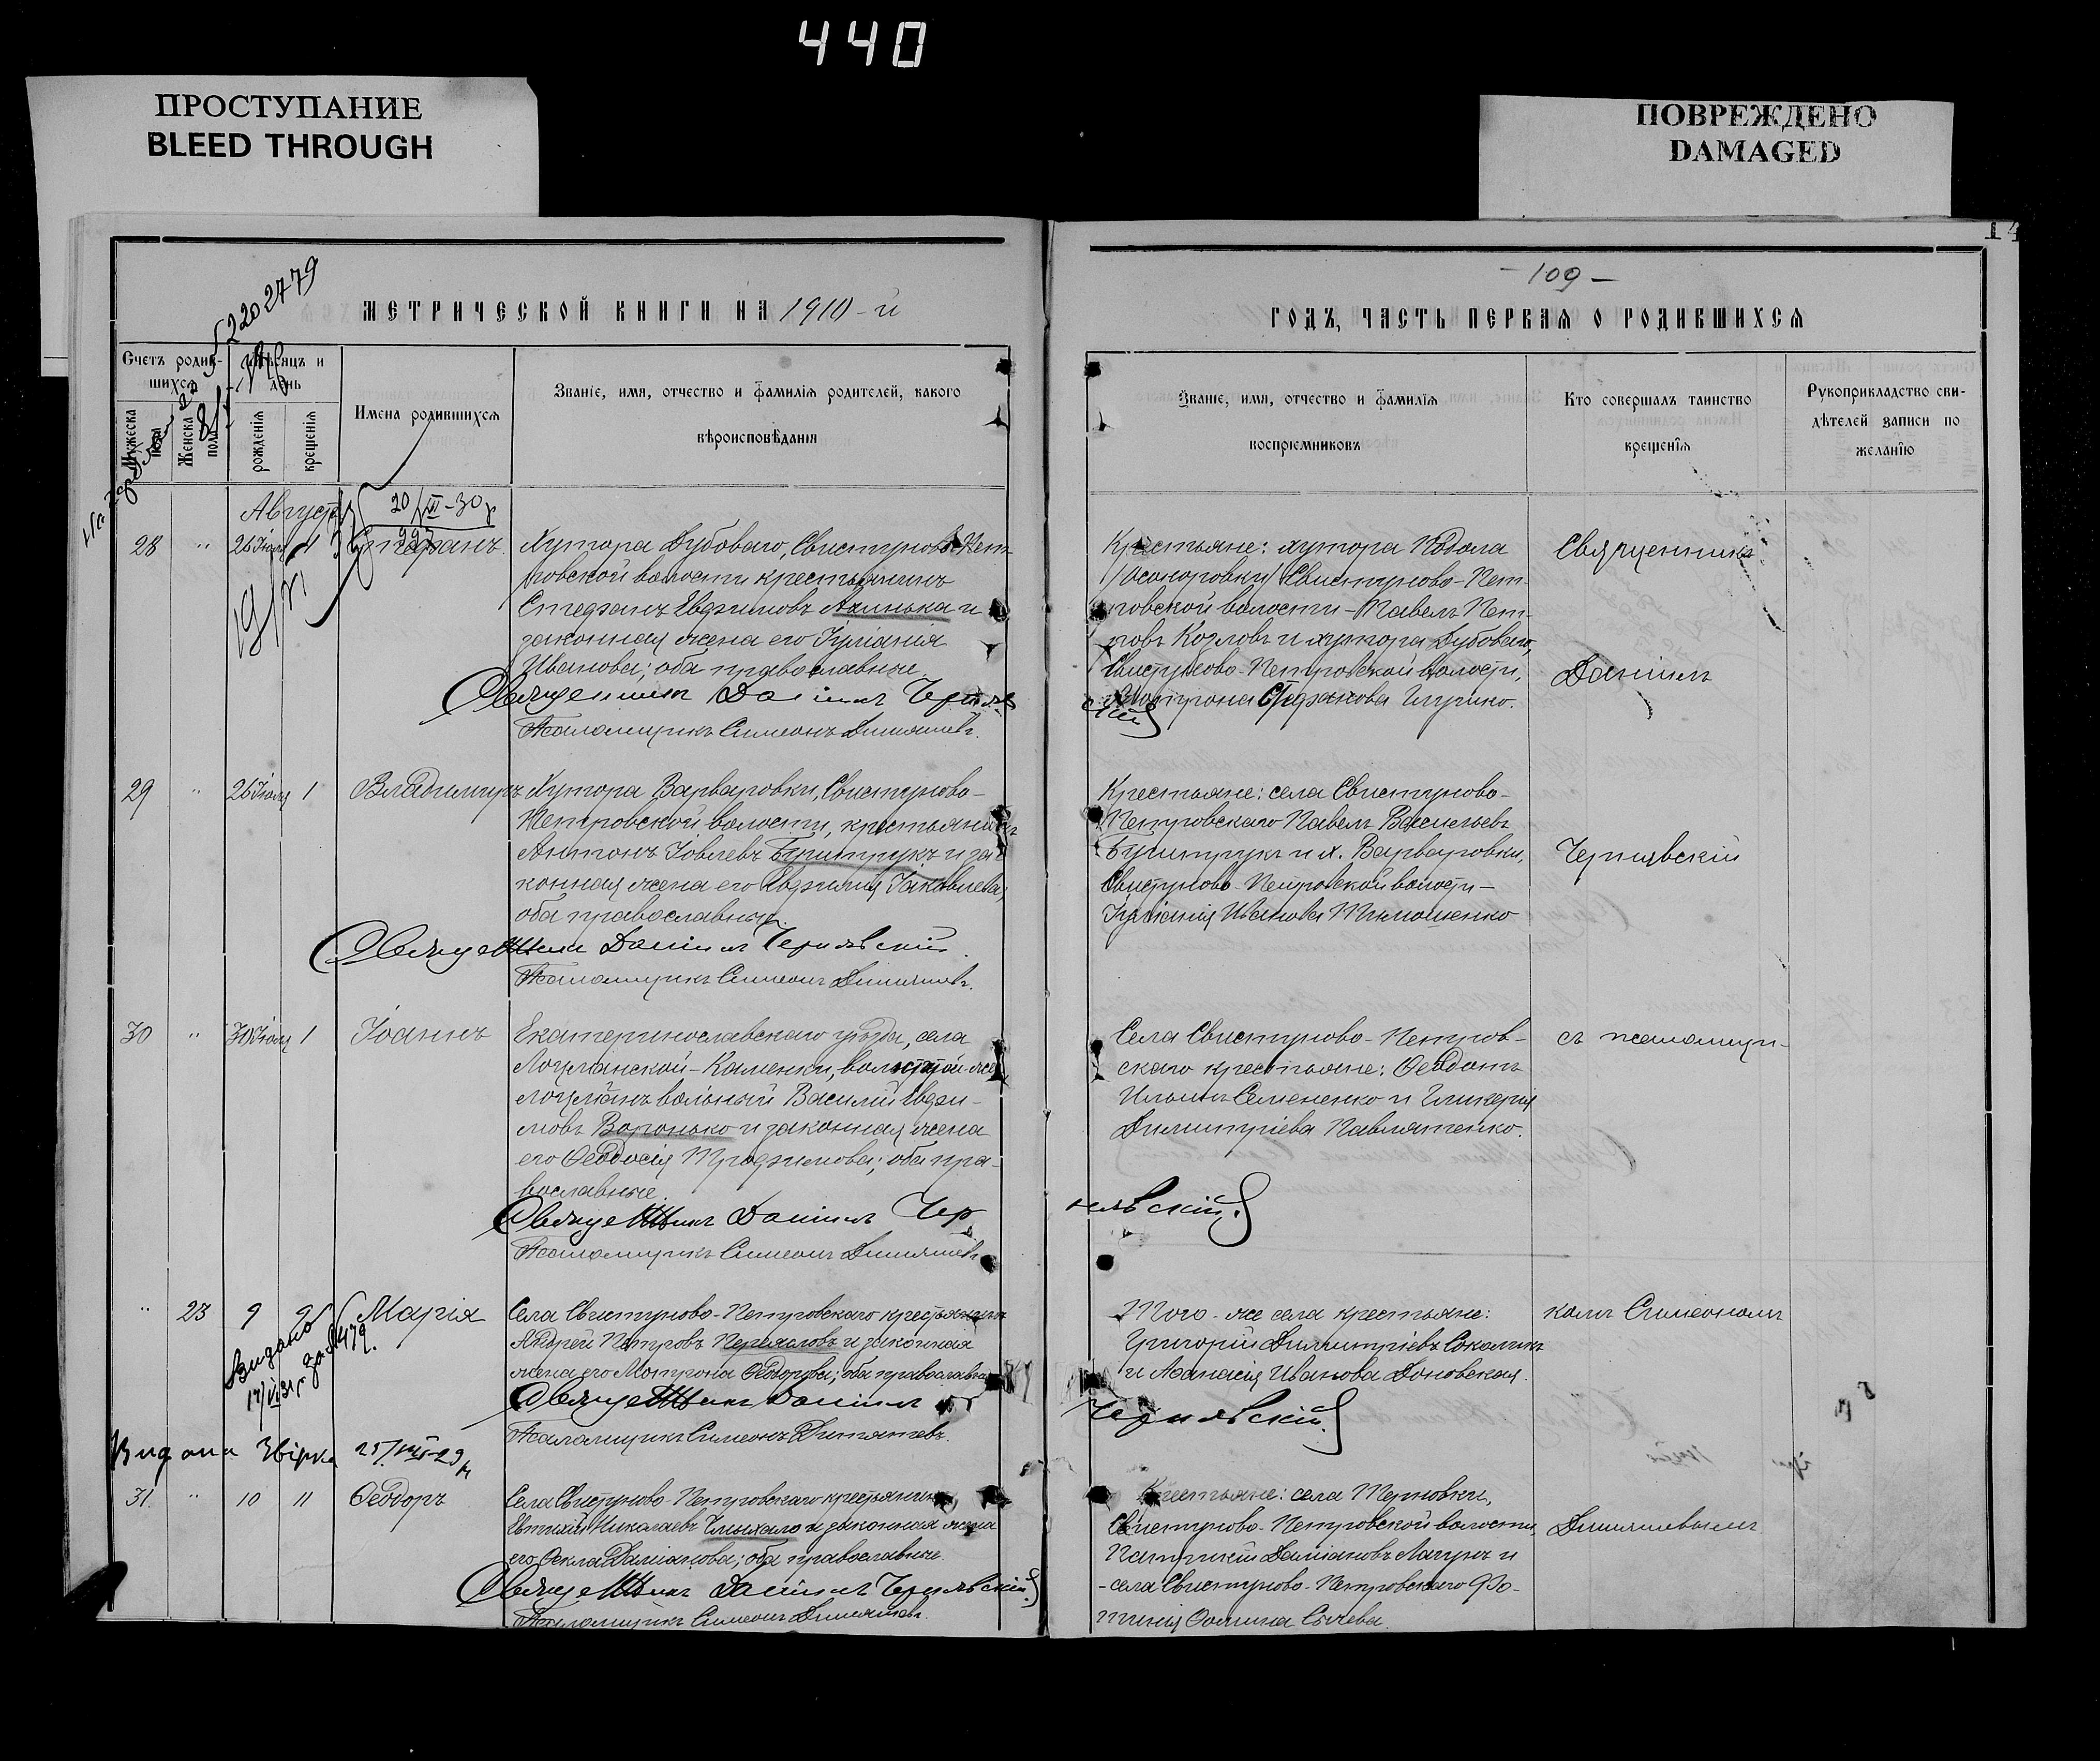 440
ПРОСТУПАНИЕ
BLEED THROUGH
ПОВРЕЖДЕНО
DAMAGED
14
- 109 -
5202779
МЕТРИЧЕСКОЙ КНИГИ НА 1910-й
ГОДЪ, ЧАСТЬ ПЕРВАЯ О РОДИВШИХСЯ
Счетъ родив-
шихся
Мѣсяцъ и
день
Мужеска
пола
Женска
пола
рожденія
крещенія
Имена родившихся
Званіе, имя, отчество и фамилія родителей, какого
вѣроисповѣданія
Званіе, имя, отчество и фамилія
воспріемниковъ
Кто совершалъ таинство
крещенія
Рукоприкладство сви-
дѣтелей записи по
желанію
Августъ
20/VI-30 р
28 " 26 Іюля 1 Стефанъ.
Хутора Дубоваго, Свистуново-Пет-
ровской волости крестьянинъ
Стефанъ Евфимовъ и
законная жена его Іуліанія
Иванова; оба православные.
Священникъ Даніилъ Чернявскій
Псаломщикъ Симеонъ
Крестьяне: хутора Подола
/Осокоровки/ Свистуново-Пет-
ровской волости - Павелъ Пет-
ровъ Козловъ и хутора Дубоваго,
Свистуново-Петровской волости,
Матрона Стефанова
Священникъ
Даніилъ
29 " 26 Іюля 1 Владимиръ
Хутора Варваровки, Свистуново-
Петровской волости, крестьянинъ
Антонъ Іовлевъ Бушптрукъ и за-
конная жена его Евфимія Іаковлева;
оба православные.
Священникъ Даніилъ Чернявскій.
Псаломщикъ Симеонъ
Крестьяне: села Свистуново-
Петровскаго Павелъ Васильевъ
и х. Варваровки,
Свистуново-Петровской волости -
Іуліанія Иванова Тимошенко
Чернявскій
30 " 30 Іюля 1 Іоаннъ
Екатеринославскаго уѣзда, села
Лоцманской-Каменки, волости той-же
лоцманъ вольный Василій Евфи-
мовъ Воронько и законная жена
его Ѳеодосія Трофимова; оба пра-
вославные.
Священникъ Даніилъ Чернявскій.
Псаломщикъ Симеонъ
Села Свистуново-Петров-
скаго крестьяне: Ѳеодотъ
Ильинъ Семененко и Гликерія
Димитріева Павлятенко.
съ псаломщи-
" 23 9 9 Марія
Видано
17/VI 31 р за № 479.
Села Свистуново-Петровскаго крестьянинъ
Андрей Петровъ и законная
жена его Матрона Ѳеодорова; оба православные
Священникъ Даніилъ Чернявскій
Псаломщикъ Симеонъ
Того-же села крестьяне:
Григорій Димитріевъ Соколикъ
и Аѳанасія Иванова Доновская.
комъ Симеономъ
Видана Звірка 25/VIII-29 р
31. " 10 11 Ѳеодоръ
Села Свистуново-Петровскаго крестьянинъ
Евтихій Николаевъ Чмыхало и законная жена
его Ѳекла Даміанова; оба православные.
Священникъ Даніилъ Чернявскій
Псаломщикъ Симеонъ
Крестьяне: села Терновки,
Свистуново-Петровской волости,
Патрикій Даміановъ и
села Свистуново-Петровскаго Фо-
тинія Ѳомина Сычева.